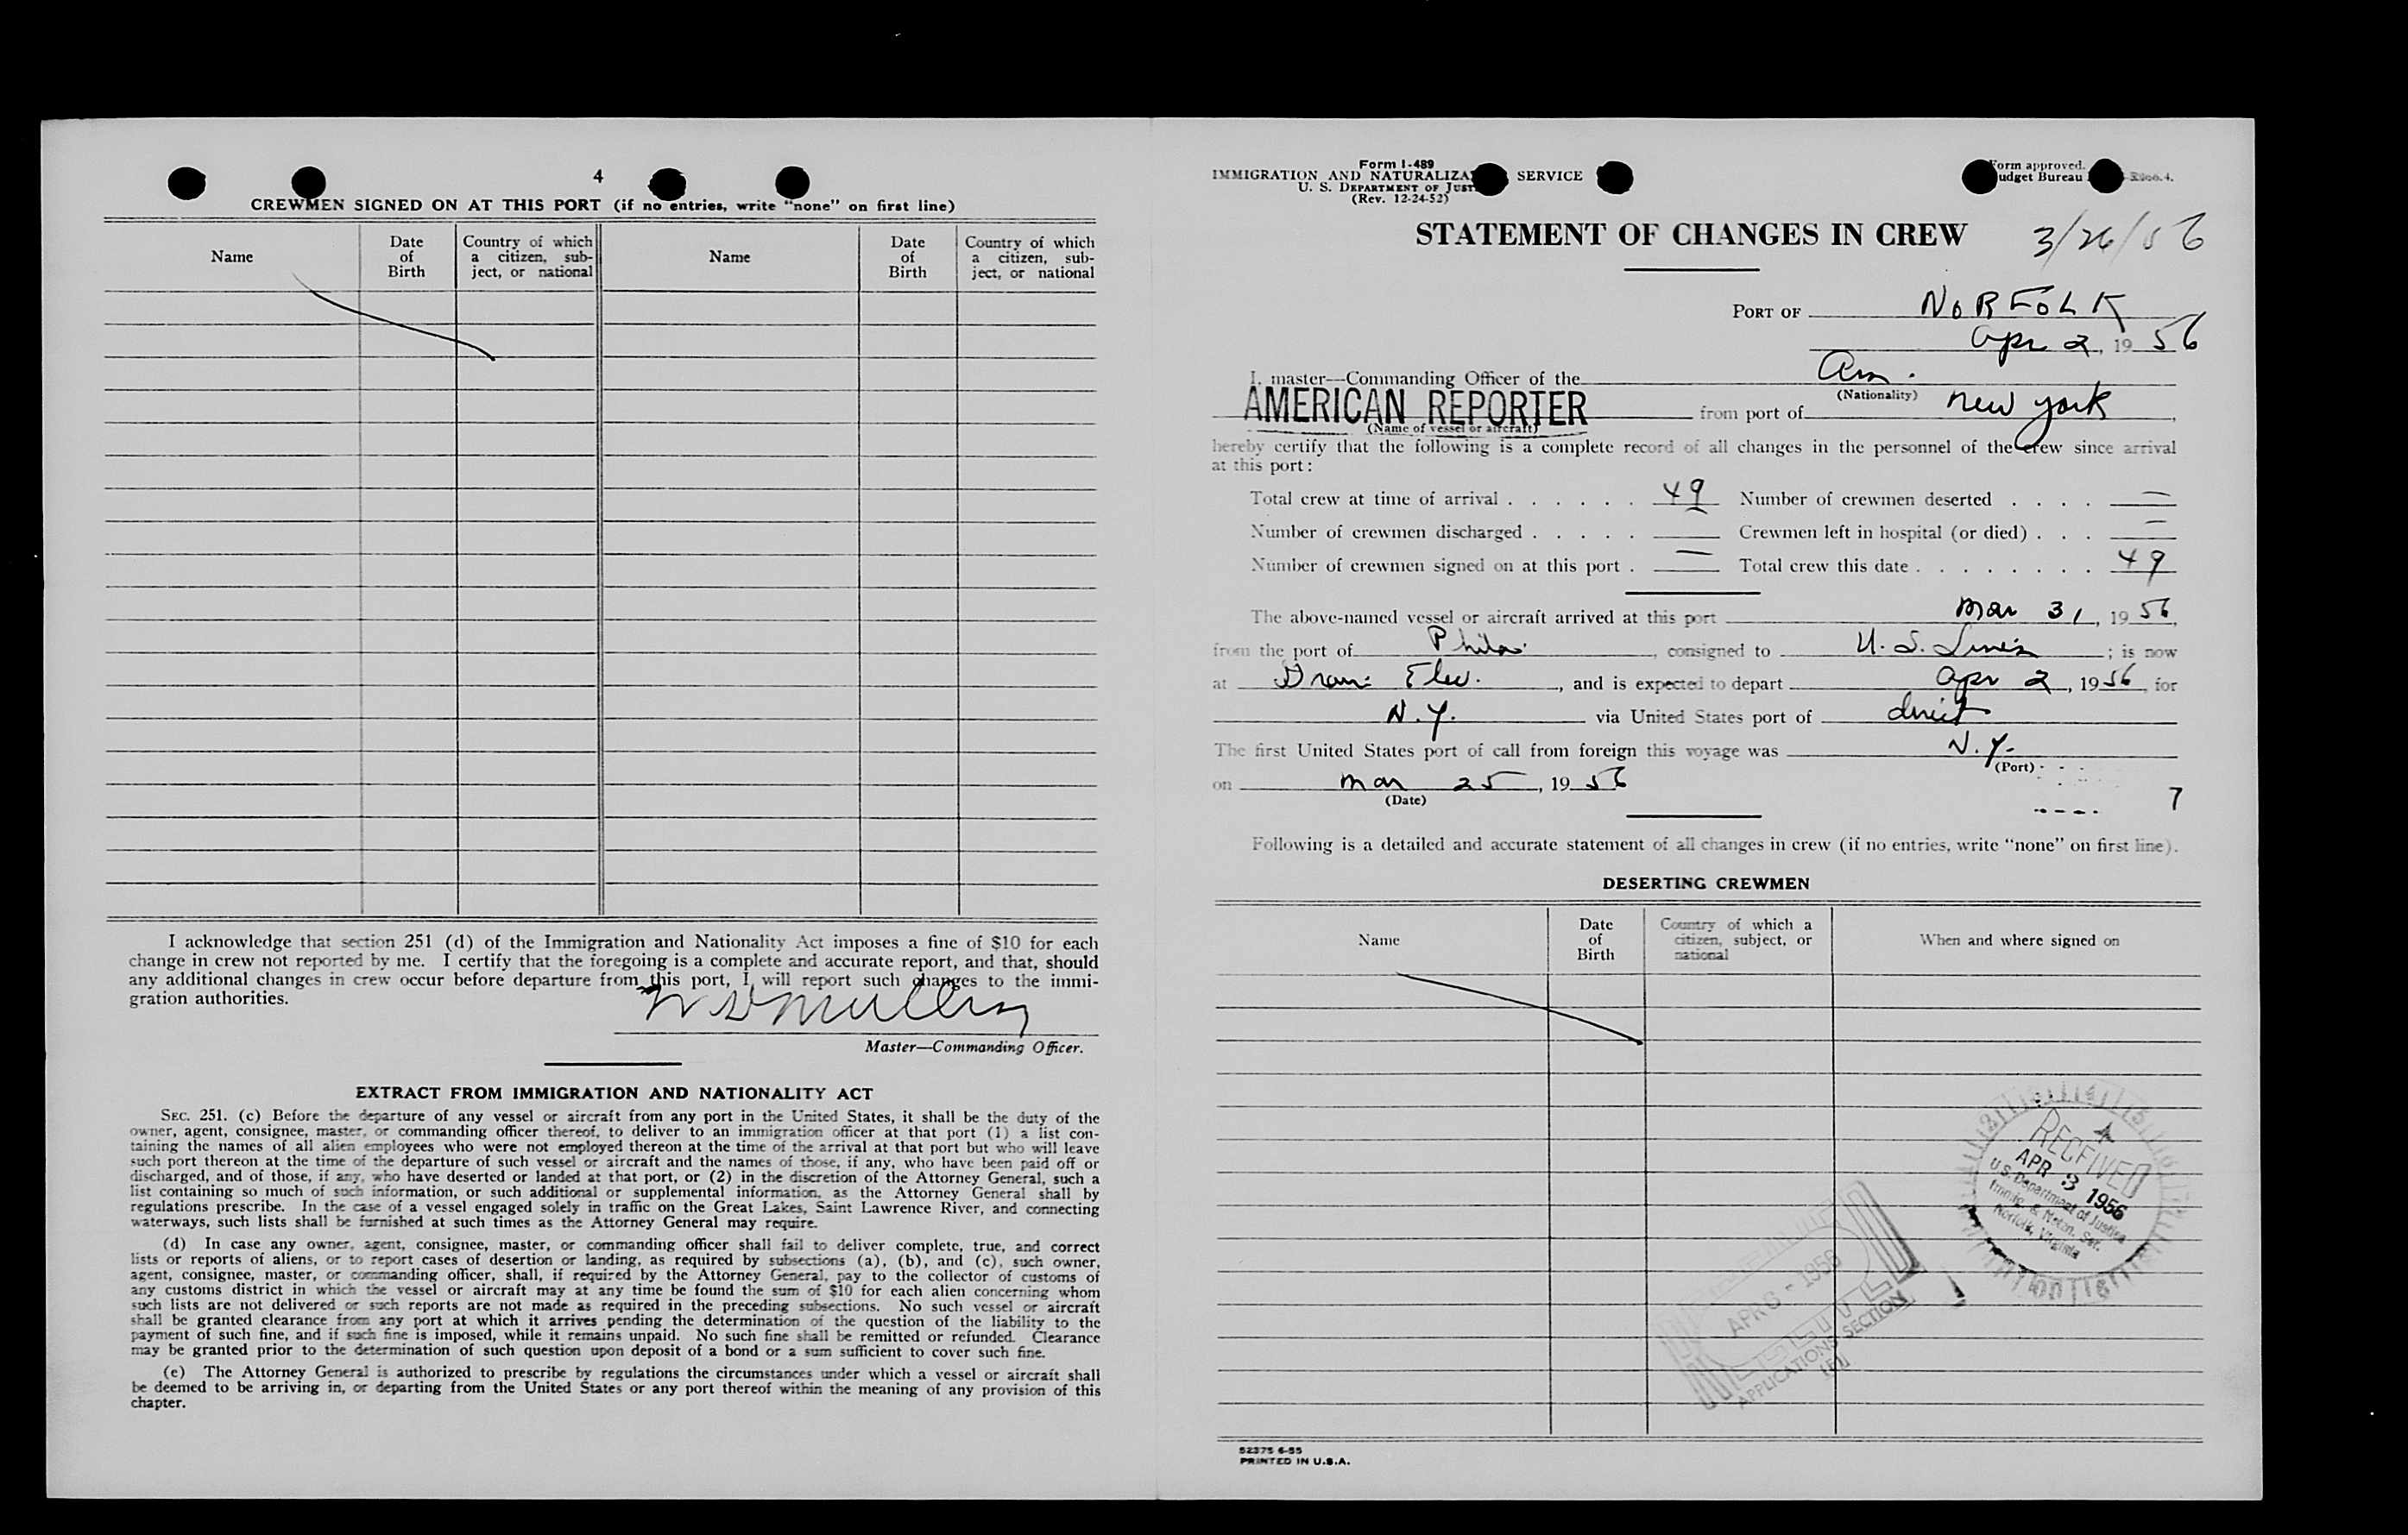 4
CREWMEN SIGNED ON AT THIS PORT (if no entries, write "none" on first line)
Name
Date of Birth
Country of which a citizen, subject, or national
Name
Date of Birth
Country of which a citizen, subject, or national
I acknowledge that section 251 (d) of the Immigration and Nationality Act imposes a fine of $10 for each
change in crew not reported by me. I certify that the foregoing is a complete and accurate report, and that, should
any additional changes in crew occur before departure from this port, I will report such changes to the immi-
gration authorities.
Master—Commanding Officer.
EXTRACT FROM IMMIGRATION AND NATIONALITY ACT
SEC. 251. (c) Before the departure of any vessel or aircraft from any port in the United States, it shall be the duty of the
owner, agent, consignee, master, or commanding officer thereof, to deliver to an immigration officer at that port (1) a list con-
taining the names of all alien employees who were not employed thereon at the time of the arrival at that port but who will leave
such port thereon at the time of the departure of such vessel or aircraft and the names of those, if any, who have been paid off or
discharged, and of those, if any, who have deserted or landed at that port, or (2) in the discretion of the Attorney General, such a
list containing so much of such information, or such additional or supplemental information, as the Attorney General shall by
regulations prescribe. In the case of a vessel engaged solely in traffic on the Great Lakes, Saint Lawrence River, and connecting
waterways, such lists shall be furnished at such times as the Attorney General may require.
(d) In case any owner, agent, consignee, master, or commanding officer shall fail to deliver complete, true, and correct
lists or reports of aliens, or to report cases of desertion or landing, as required by subsections (a), (b), and (c), such owner,
agent, consignee, master, or commanding officer, shall, if required by the Attorney General, pay to the collector of customs of
any customs district in which the vessel or aircraft may at any time be found the sum of $10 for each alien concerning whom
such lists are not delivered or such reports are not made as required in the preceding subsections. No such vessel or aircraft
shall be granted clearance from any port at which it arrives pending the determination of the question of the liability to the
payment of such fine, and if such fine is imposed, while it remains unpaid. No such fine shall be remitted or refunded. Clearance
may be granted prior to the determination of such question upon deposit of a bond or a sum sufficient to cover such fine.
(e) The Attorney General is authorized to prescribe by regulations the circumstances under which a vessel or aircraft shall
be deemed to be arriving in, or departing from the United States or any port thereof within the meaning of any provision of this
chapter.
Form I-489
IMMIGRATION AND NATURALIZA SERVICE
U. S. DEPARTMENT OF JUST
(Rev. 12-24-52)
Form approved.
udget Bureau
STATEMENT OF CHANGES IN CREW
3/26/56
PORT OF NORFOLK
Apr 2, 19 56
I, master—Commanding Officer of the Am.
(Nationality)
AMERICAN REPORTER from port of new york,
(Name of vessel or aircraft)
hereby certify that the following is a complete record of all changes in the personnel of the crew since arrival
at this port:
Total crew at time of arrival . . . . . . 49 Number of crewmen deserted . . . . —
Number of crewmen discharged . . . . . Crewmen left in hospital (or died) . . . —
Number of crewmen signed on at this port . — Total crew this date . . . . . . . . 49
The above-named vessel or aircraft arrived at this port Mar 31, 19 56,
from the port of Phila., consigned to U. S. Lines; is now
at Elev., and is expected to depart Apr 2, 19 56, for
N.Y. via United States port of direct
The first United States port of call from foreign this voyage was N.Y.
(Port)
on Mar 25, 19 56
(Date)
7
Following is a detailed and accurate statement of all changes in crew (if no entries, write "none" on first line).
DESERTING CREWMEN
Name
Date of Birth
Country of which a citizen, subject, or national
When and where signed on
RECEIVED
APR 3 1956
U.S. Department of Justice
Immig. & Natzn. Ser.
Norfolk, Virginia
APR 6 - 1956
APPLICATIONS SECTION
52375 6-55
PRINTED IN U.S.A.